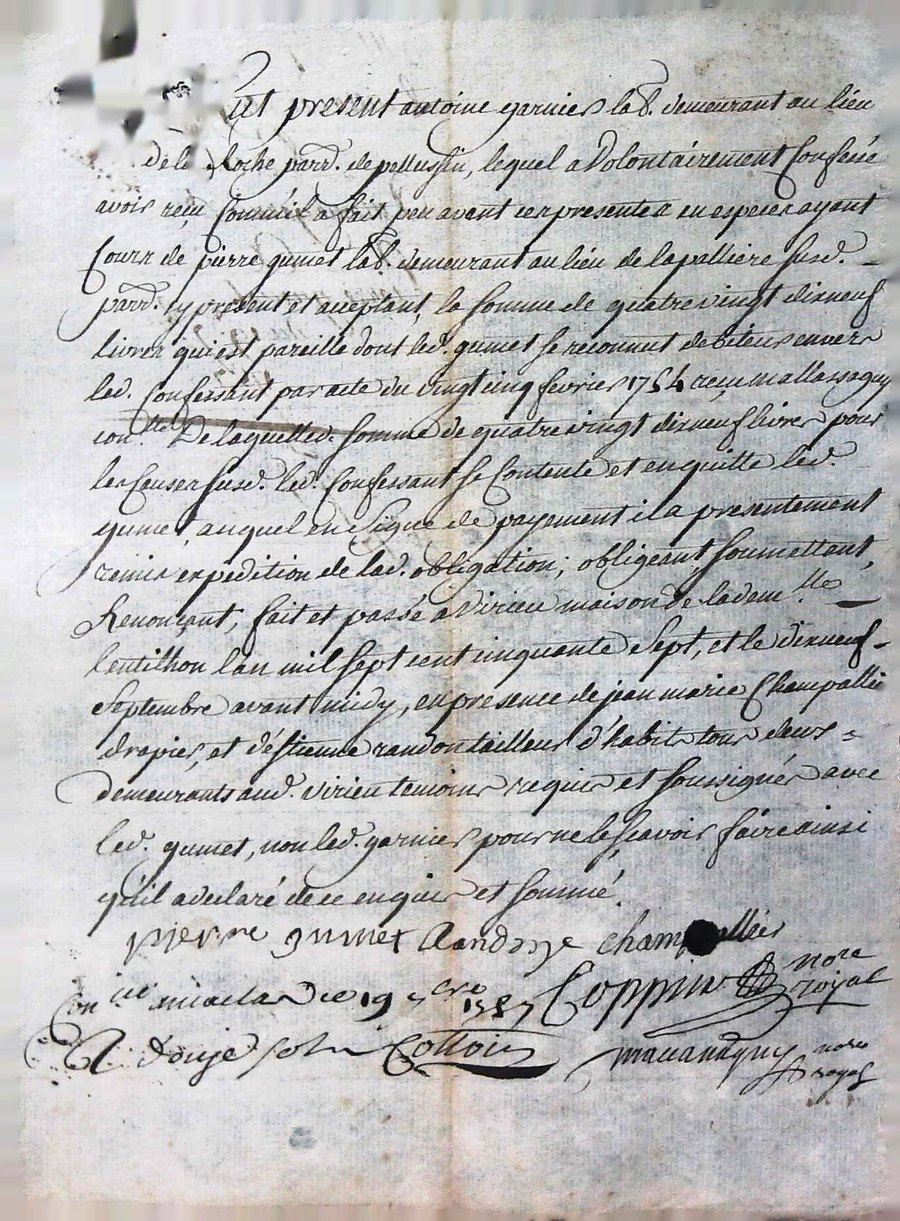 fut present antoine garnier lab. demeurant au lieu
de la Roche pard. de pellussin, lequel a Volontairement Confessé
avoir reçu Comme il a fait peu avant ces presentes en especes ayant
Cours de pierre gumet lab. demeurant au lieu de la pallière susd.
pard. y present et aceptant, la somme de quatre vingt dixneuf
Livres qui est pareille dont led. gumet se reconnut debiteur envers
led. Confessant par acte du vingt cinq fevrier 1754 reçu
De laquelle d. somme de quatre vingt dixneuf livres pour
les Causes susd. led. Confessant se Contente et en quitte led.
gumet, auquel en signe de payement il a presentement
remis expedition de lad. obligation; obligeant, soumettant,
Renonçant, fait et passé a Virieu maison de la dem.lle
Lentilhon l'an mil sept cent cinquante sept, et le dixneuf
Septembre avant midy, en presence de jean marie Champallier
drapier, et d'Estienne randon tailleur d'habits tous deux =
demeurants aud. virieu temoins requis et soussignés avec
led. gumet, non led. garnier pour ne le sçavoir faire ainsi
qu'il a declaré de ce enquis et sommé.
pierre gumet Randon champallier
Con.llé a 19 7bre 1757 Coppin nore royal
R douze sols nore royal